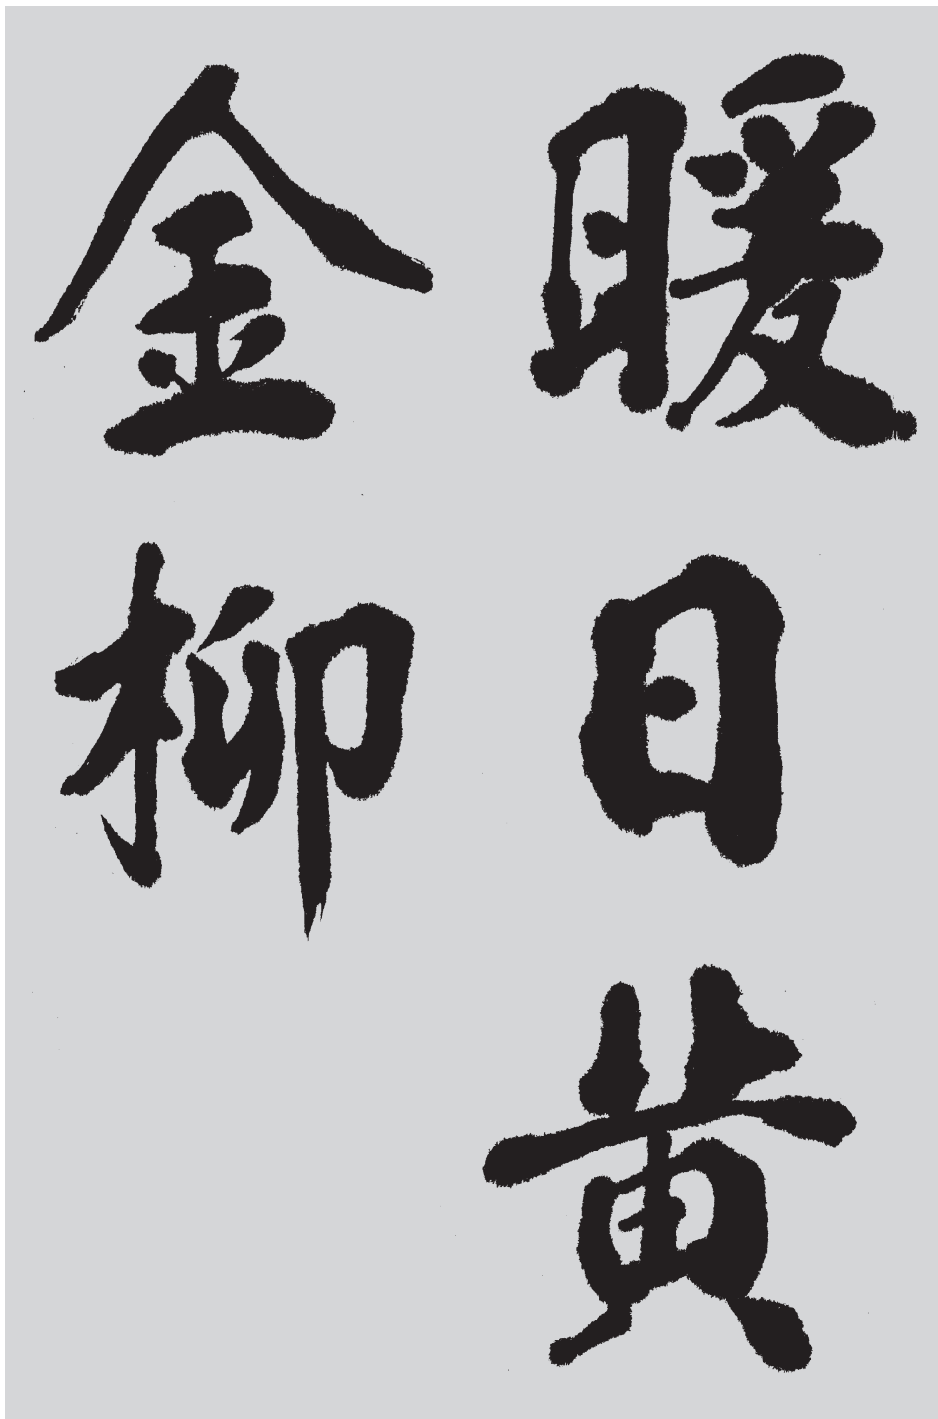 暖日黄
金柳